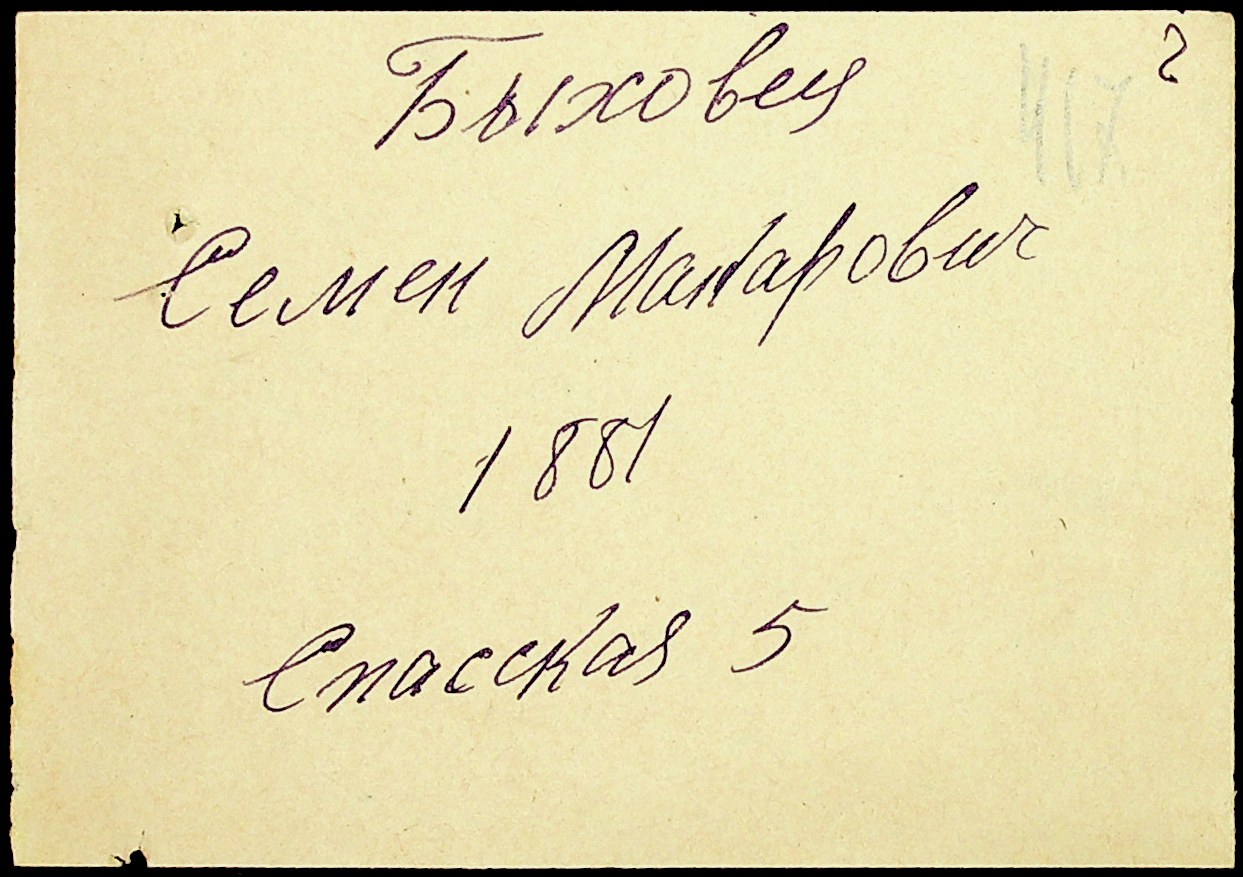 Быховец
Семен Макарович
1881
Спасская 5